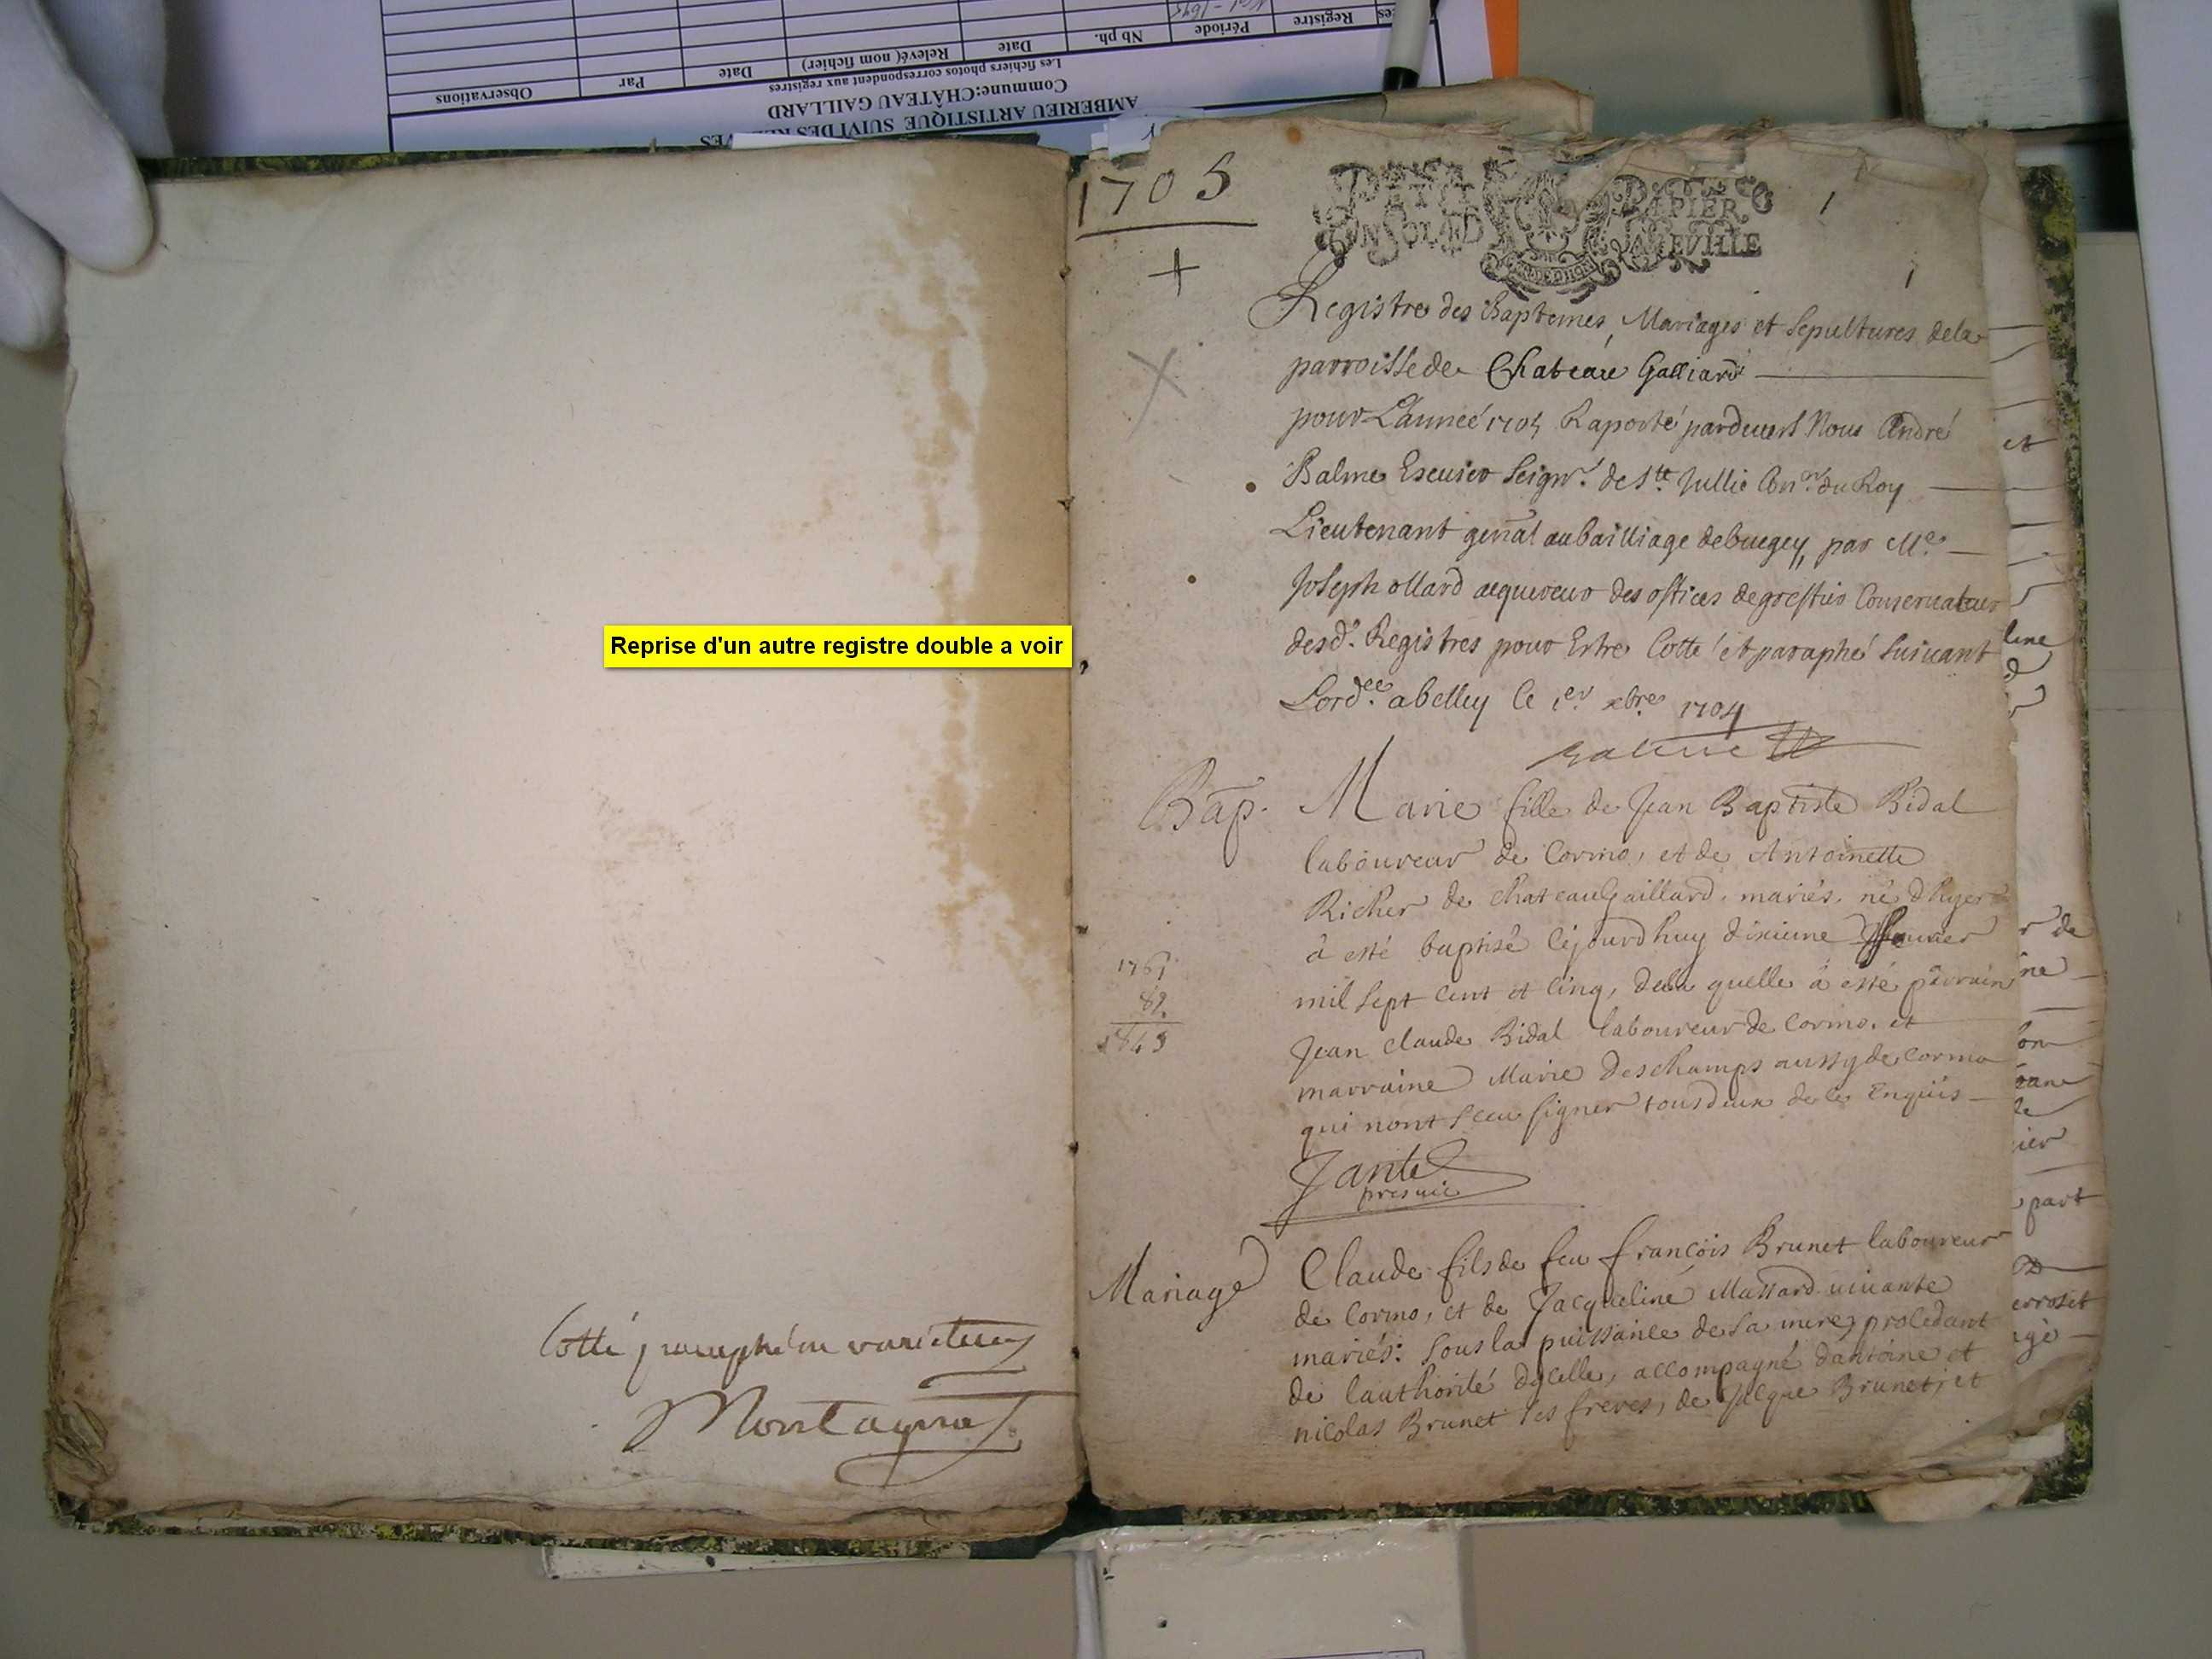 Observations
Par
Date
Relevé( nom fichier)
Date
Nb ph.
Période
Registre
Les fichiers photos correspondent aux registres
Commune:CHÂTEAU GAILLARD
AMBERIEU ARTISTIQUE SUIVI DES
Reprise d'un autre registre double a voir
Cotté
Montagnat
1705
PETIT PAPIER
UN SOL LA FEVILLE
1
1
Registre des Baptemes, Mariages et Sepultures dela
parroisse de Chateau Galliard
pour L'anneé 1705 Raporté pardeuant Nous André
Balme Escuier Seignr. de Ste Jullie Conr. du Roy
Lieutenant genal au bailliage de bugey, par Me
Joseph ollard aequereur des offices de greffier Conseruateur
desd. Registres pour Estre Cotté et paraphé Suiuant
Lord.ce a belley le 1er xbre 1704
Balme
Bap.
Marie fille de Jean Baptiste Bidal
laboureur de Cormo, et de Antoinette
Richer de chateaugaillard, mariés, né d'hyer
à esté baptisé ce jourd huy dixieme
mil sept cent et cinq, dela quelle à esté parrain
Jean Claude Bidal laboureur de Cormo, et
marraine Marie Deschamps aussy de Cormo
qui nont sceu signer tous deux de ce Enquis
Mariage
Claude fils de feu françois Brunet laboureur
de Cormo, et de Jacqueline Massard viuante
mariés: sous la puissance de sa mere, procedant
de lauthorité dycelle, accompagné dantoine et
nicolas Brunet ses freres, de Jacque Brunet, et